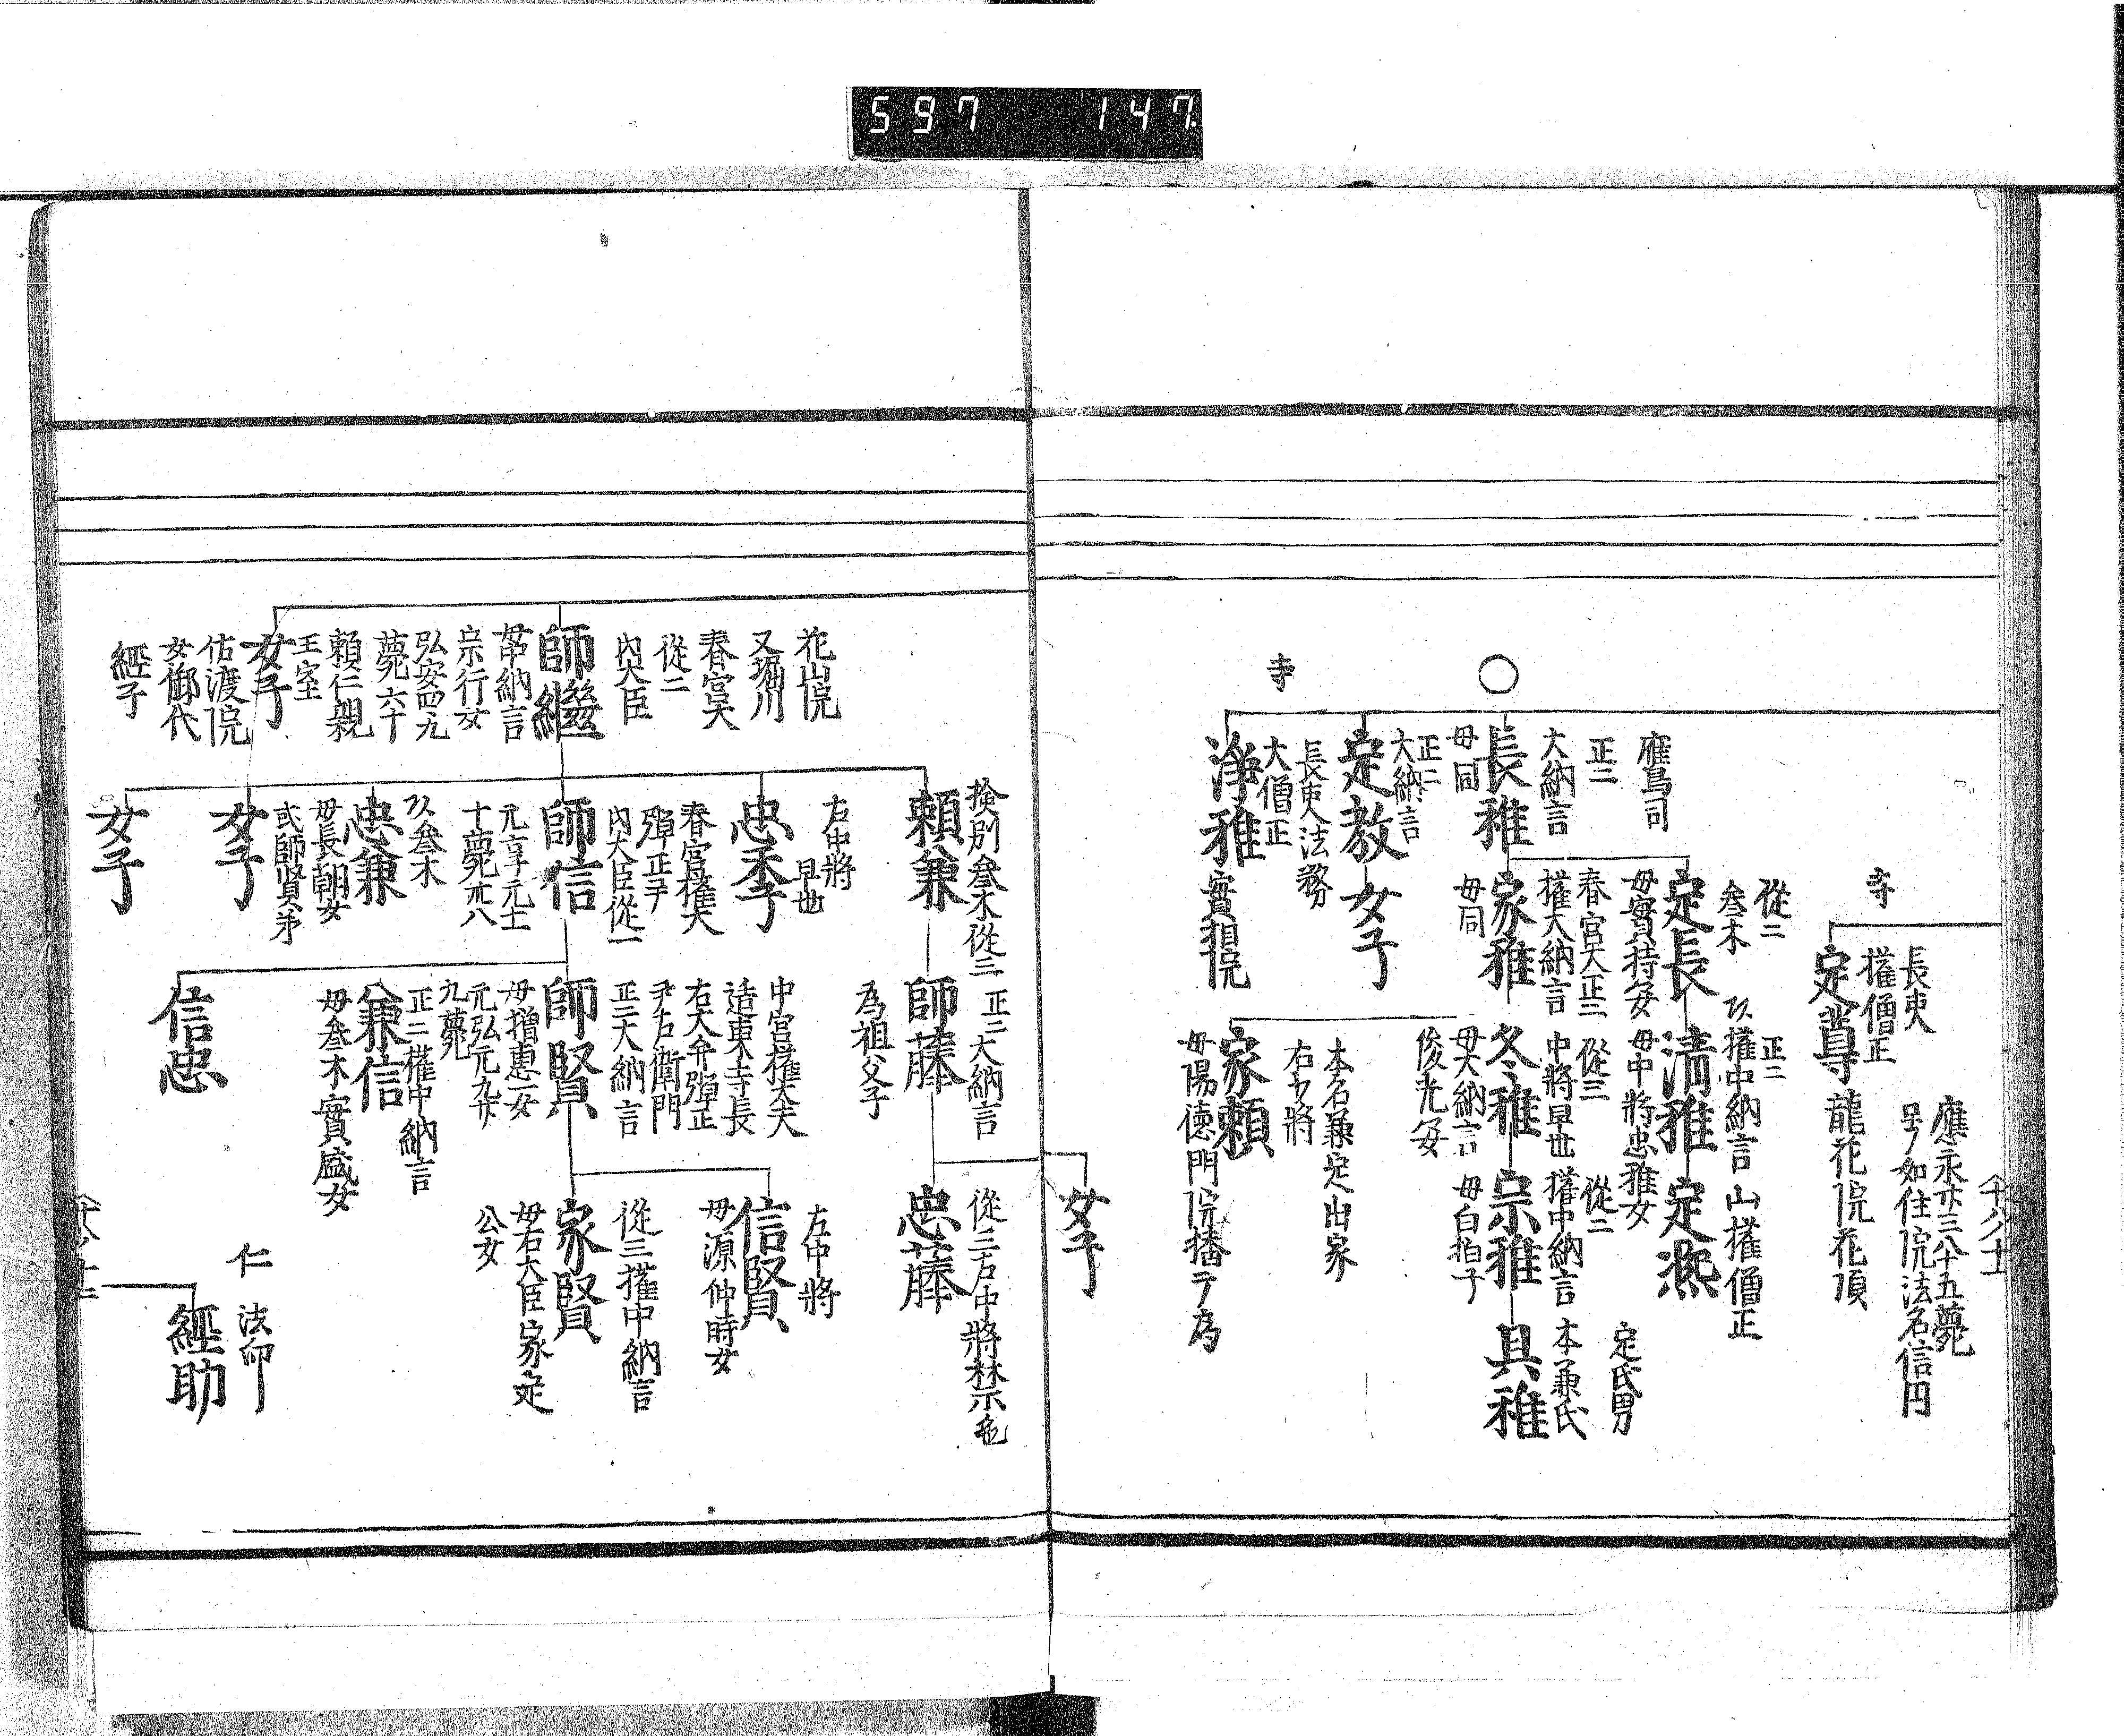 597 147
長吏
權僧正
寺
定尊 龍花院花頂
應永廿三八十五薨
号如住院法名信円
○
鷹司
正二
大納言
長雅
母同
從二
叁木
定長
母實持女
正二
權中納言
清雅
母中將忠雅女
山權僧正
定凞
春宮大正二
權大納言
家雅
母同
從三
中將早世
冬雅
母大納言
俊光女
從二
權中納言
宗雅
母白拍子
定氏男
本兼氏
具雅
本名兼定出家
右少將
家賴
母陽德門院播テ為
正二
大納言
定教
女子
寺
長吏法務
大僧正
淨雅
實相院
女子
花山院
又堀川
春宮大
從二
內大臣
師繼
母中納言
宗行女
弘安四九
薨六十
女子
賴仁親
王室
佐渡院
女御代
經子
檢別叁木從三
賴兼
正二大納言
師藤
為祖父子
從三右中將禁色
忠藤
右中將
早世
忠季
春宮權大
彈正尹
內大臣從一
師信
元亨元士
十薨卅八
中宮權大夫
造東寺長
右大弁彈正
尹右衛門
正二大納言
師賢
母播恵一女
元弘元九廿
九薨
左中將
信賢
母源仲時女
從三權中納言
家賢
母右大臣家定
公女
正二權中納言
兼信
母叁木實盛女
信忠
叁木
忠兼
母長朝女
或師賢弟
女子
女子
仁 法印
經助